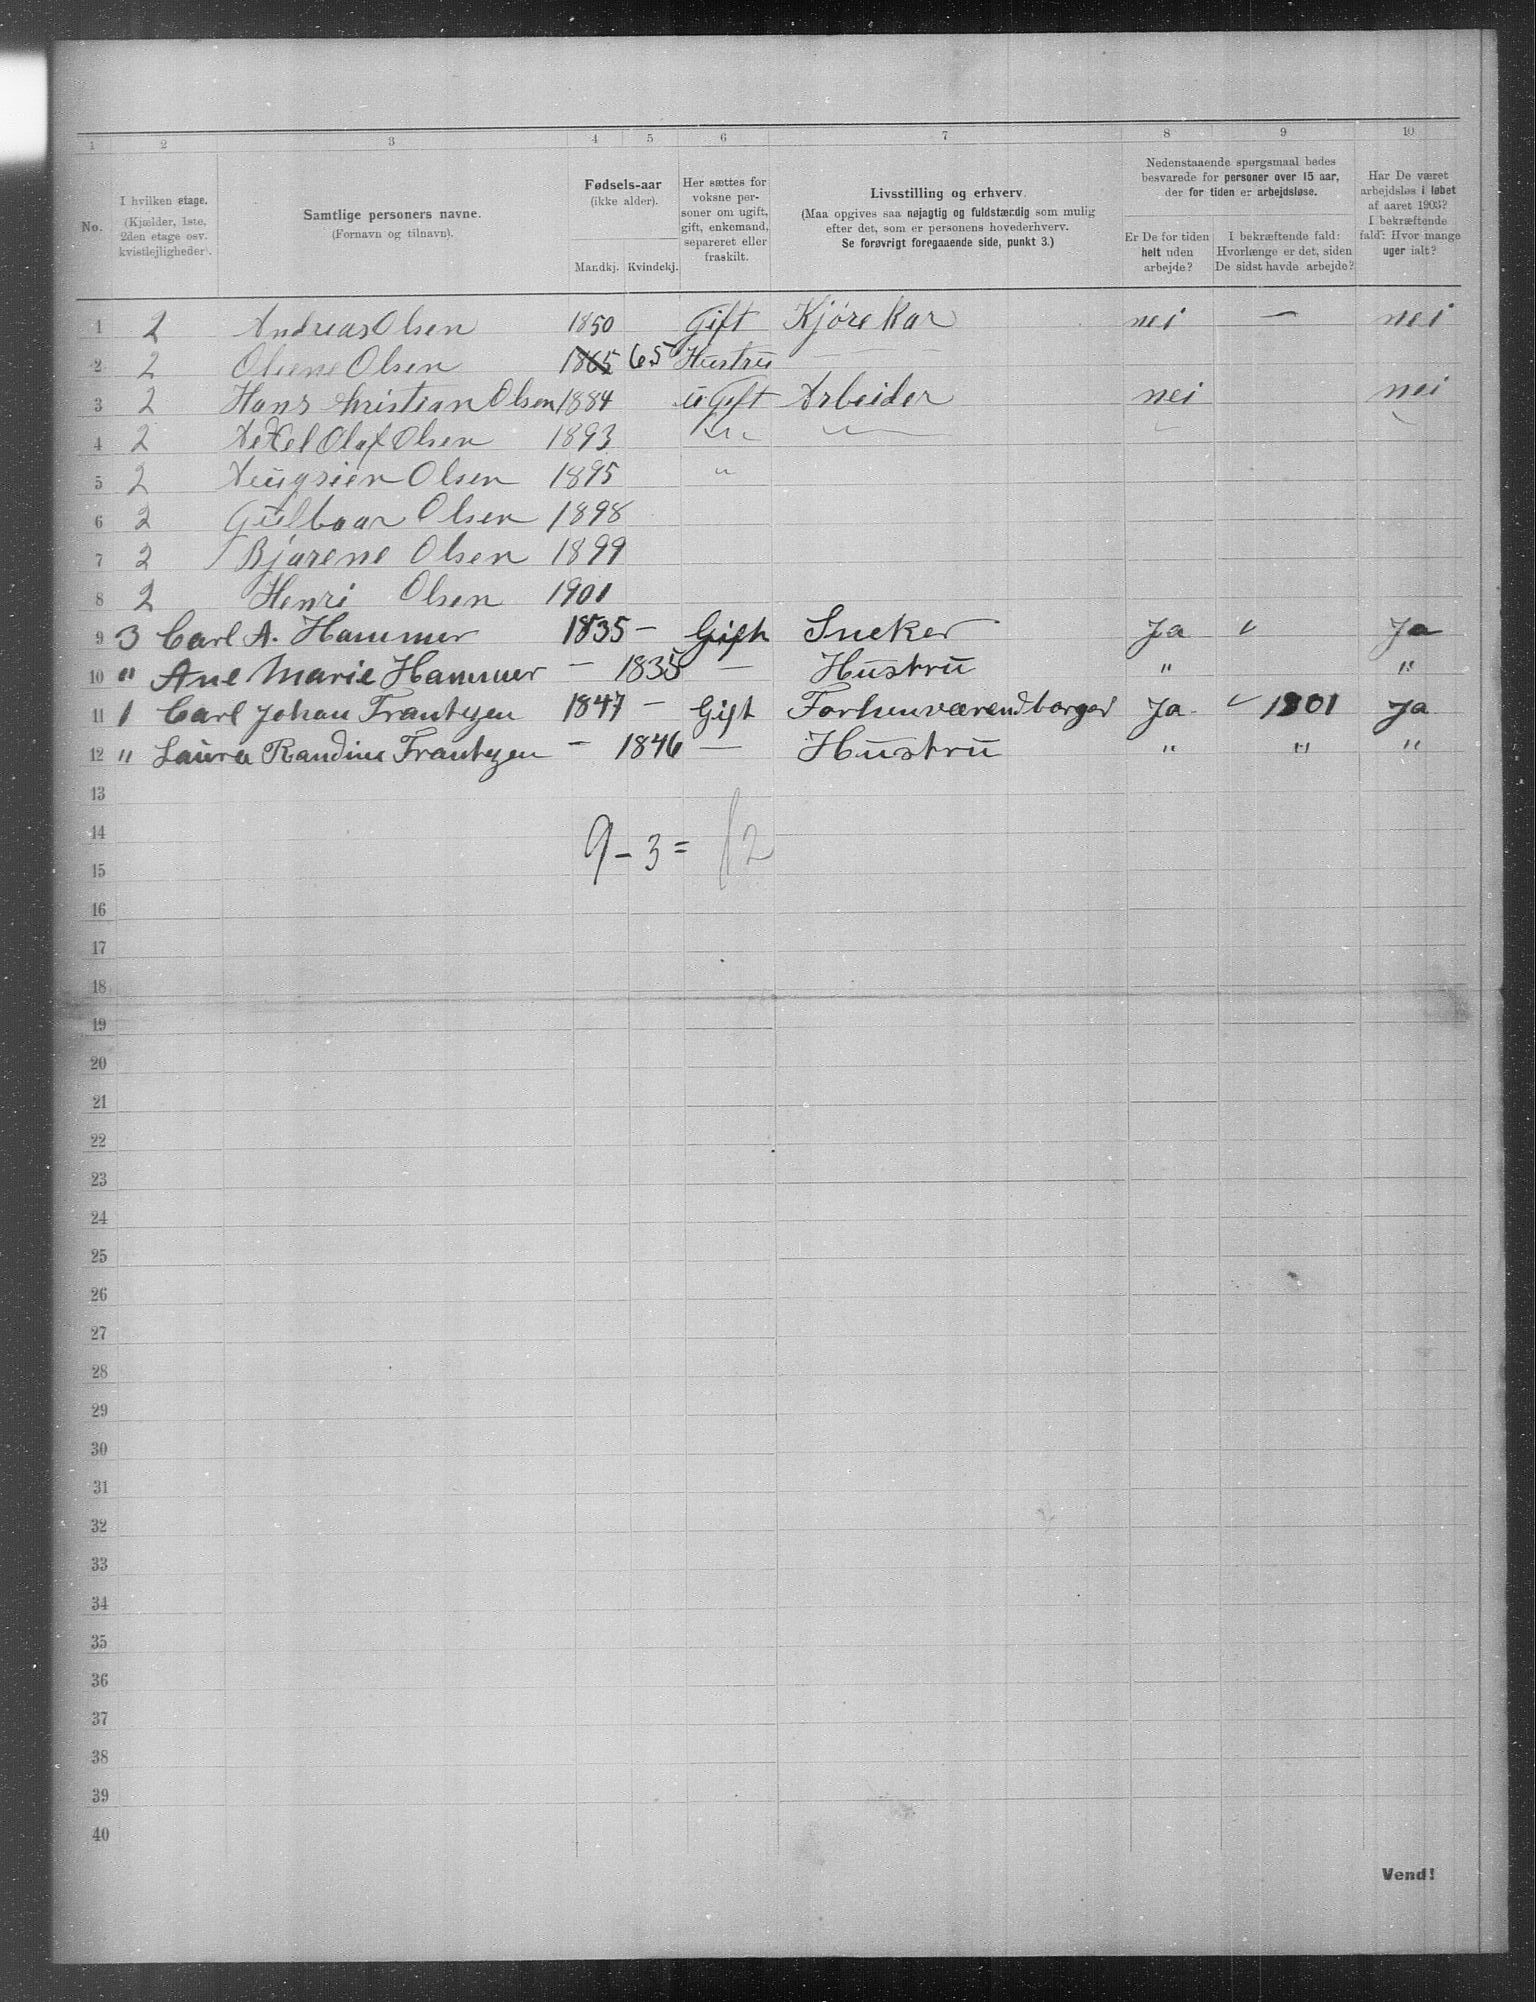 1 2 3 4 5 6 7 8 9 10
No.
I hvilken etage.
(Kjælder, 1ste,
2den etage osv.
kvistlejligheder).
Samtlige personers navne.
(Fornavn og tilnavn).
Fødsels-aar
(ikke alder).
Mandkj. Kvindekj.
Her sættes for
voksne per-
soner om ugift,
gift, enkemand,
separeret eller
fraskilt.
Livsstilling og erhverv.
(Maa opgives saa nøjagtig og fuldstændig som mulig
efter det, som er personens hovederhverv.
Se forøvrigt foregaaende side, punkt 3.)
Nedenstaaende spørgsmaal bedes
besvarede for personer over 15 aar,
der for tiden er arbejdsløse.
Er De for tiden
helt uden
arbejde?
I bekræftende fald:
Hvorlænge er det, siden
De sidst havde arbejde?
Har De været
arbejdsløs i løbet
af aaret 1903?
I bekræftende
fald: Hvor mange
uger ialt?
1 2 Andreas Olsen 1850 Gift Kjørekar nei — nei
2 2 Olene Olsen 1865 65 Hustru
3 2 Hans Christian Olsen 1884 uGift Arbeider nei nei
4 2 Aexel Olaf Olsen 1893
5 2 Olsen 1895 "
6 2 Gulbaar Olsen 1898
7 2 Bjarene Olsen 1899
8 2 Henri Olsen 1901
9 3 Carl A. Hammer 1835 — Gift Sneker Ja Ja
10 " Ane Marie Hammer — 1835 — Hustru " "
11 1 Carl Johan Frantzen 1847 — Gift Forhenværend borger Ja 1901 Ja
12 " Laura Randine Frantzen — 1846 — Hustru " " "
13
14
9 – 3 = 12
15
16
17
18
19
20
21
22
23
24
25
26
27
28
29
30
31
32
33
34
35
36
37
38
39
40
Vend!